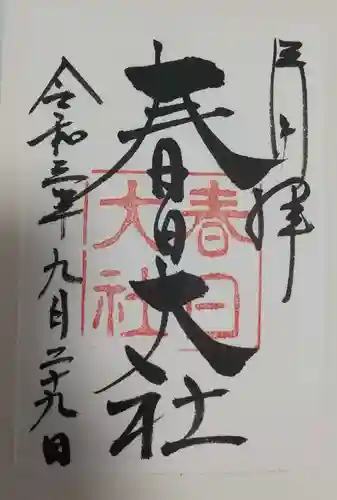 奉拝
春日大社
令和三年九月二十九日
春日
大社